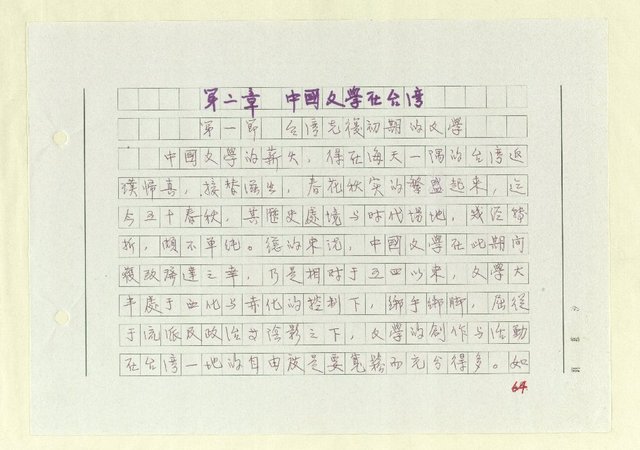 第二章 中國文學在台湾
第一節 台湾光復初期的文學
中國文學的薪火,得在海天一隅的台湾返
璞歸真,接替滋生,春花秋实的繁盛起來,迄
今五十春秋,其歷史處境与时代場地,幾经轉
折,倾不單純。總的來说,中國文學在此期间
最改隆達之幸,乃是相对于五四以來,文學大
半處于西化与赤化的控制下,绑手绑脚,屈從
于流派及政治艾陰影之下,文學的創作与活動
在台湾一地的自由被是要寬鬆而充分得多。如
64